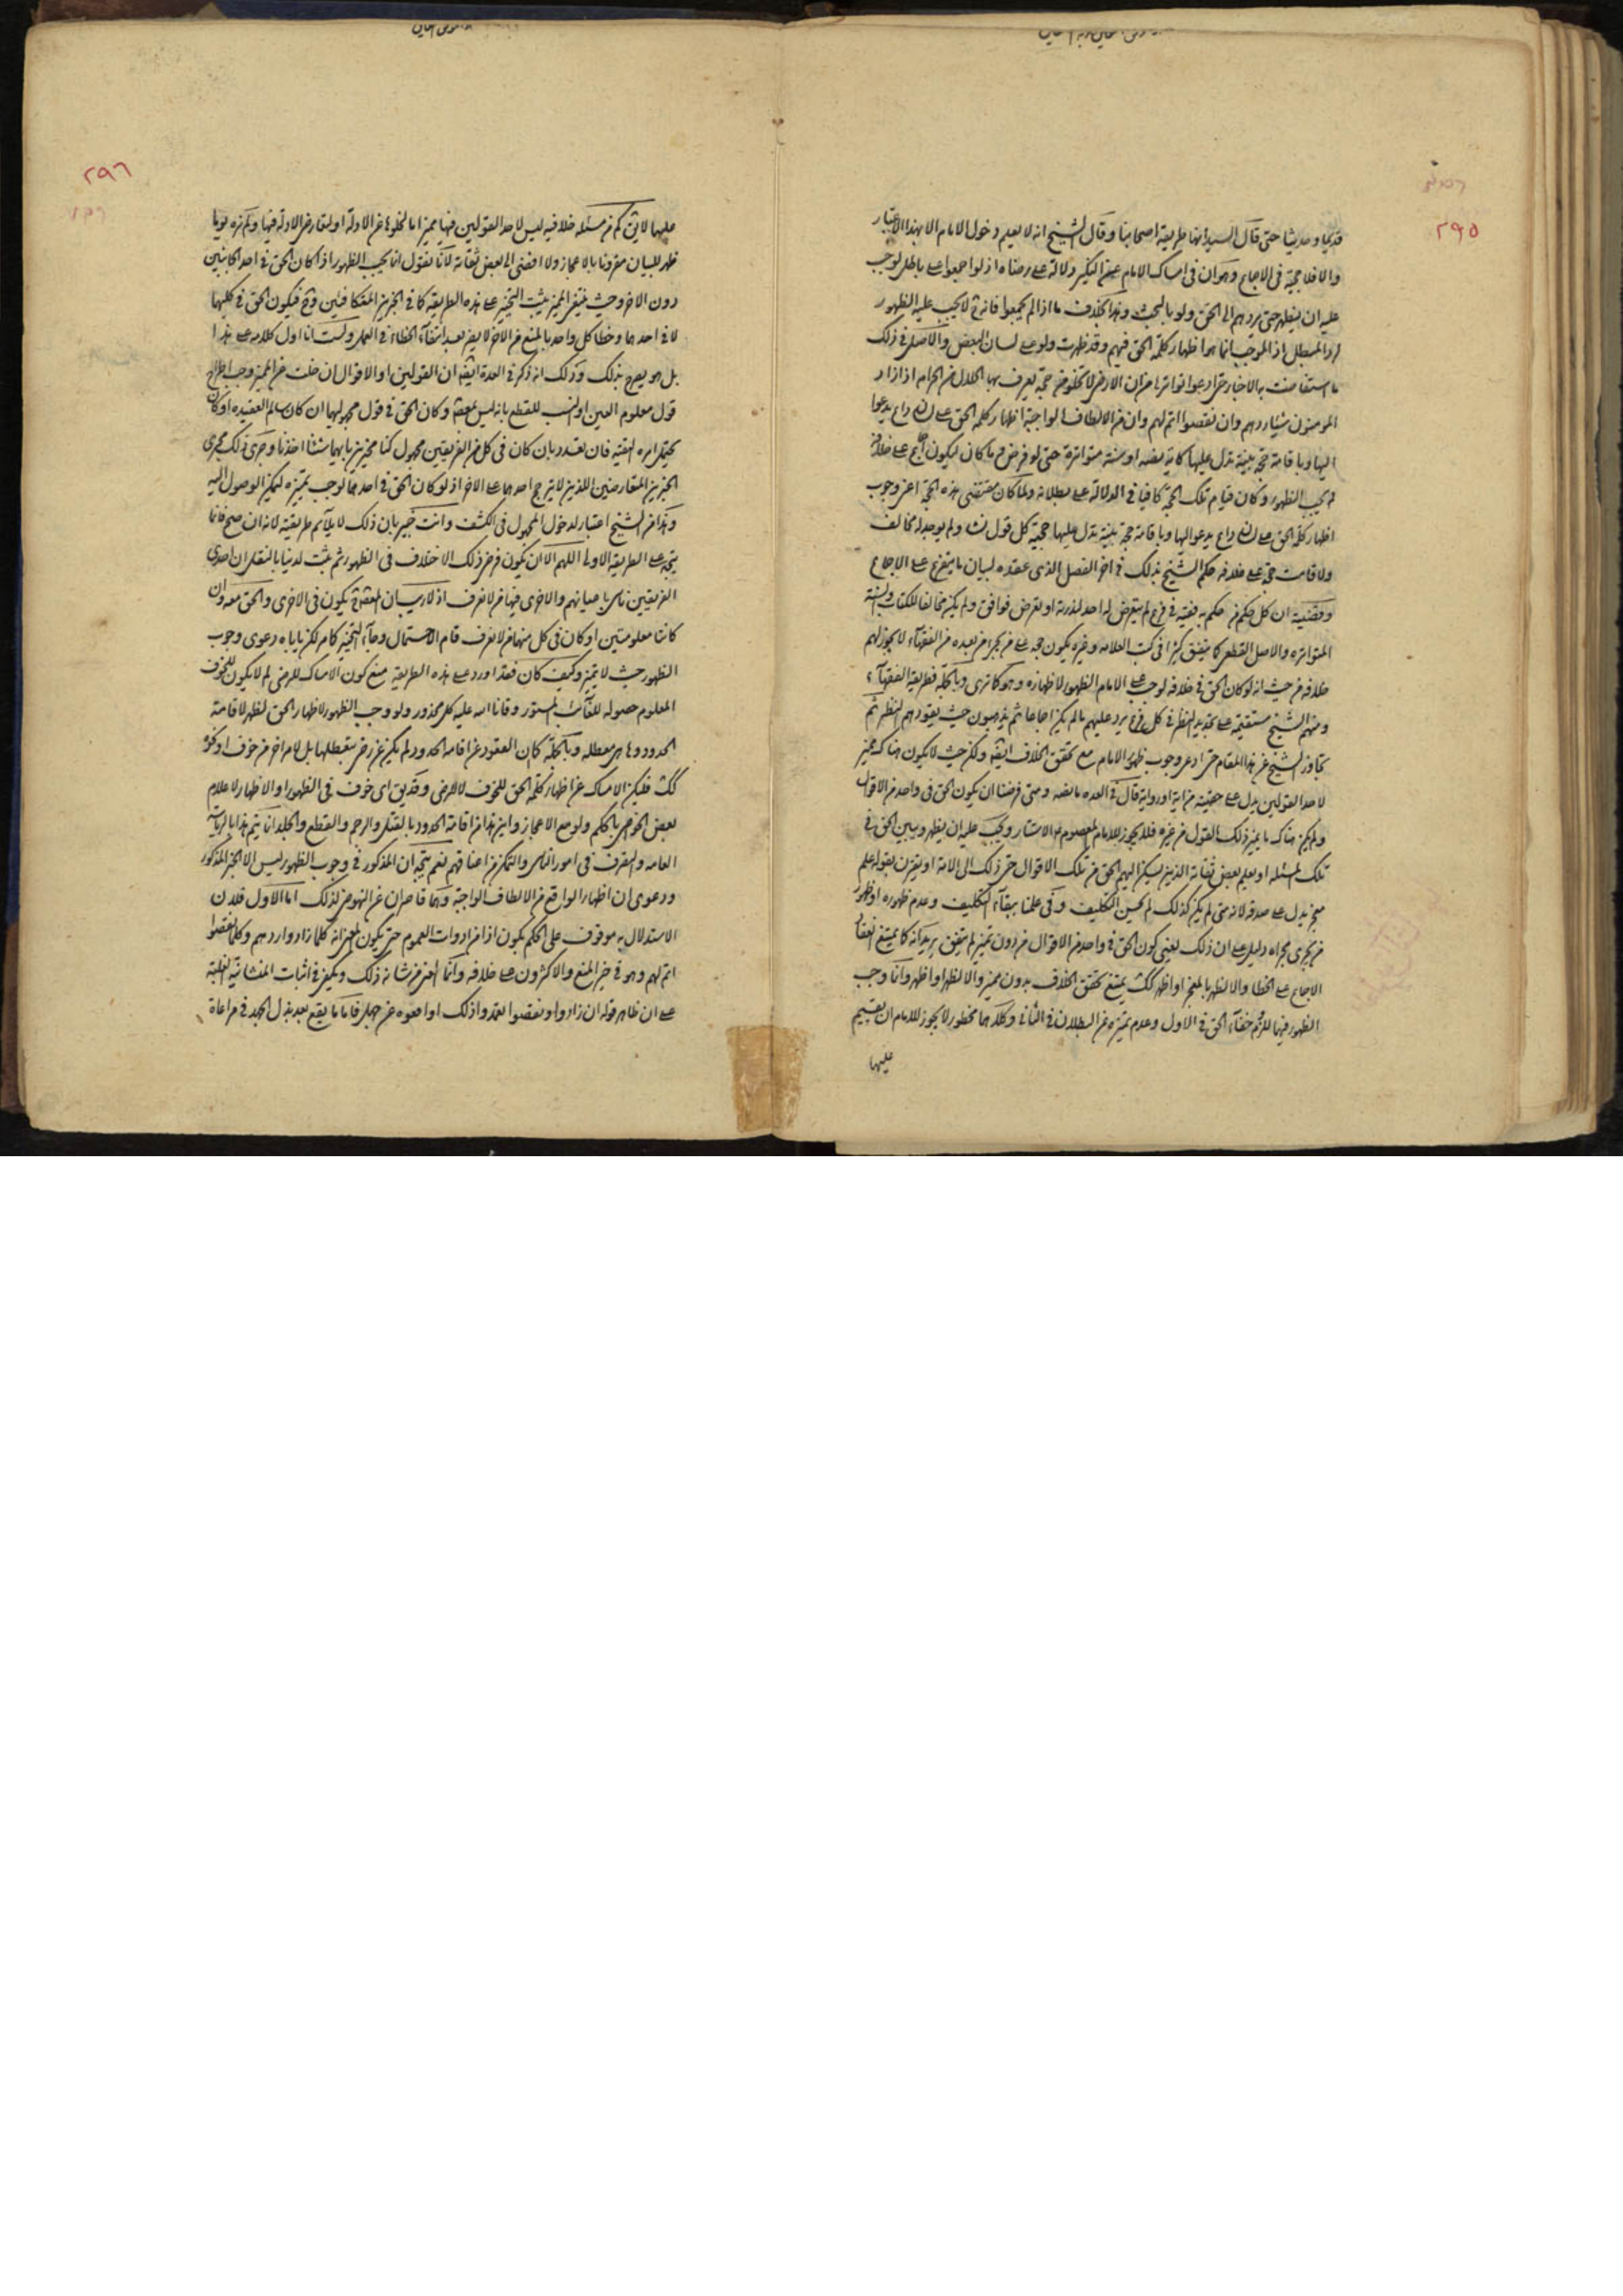 ٢٩٥
قديما وحديثا حتى قال السيد انها طريقة اصحابنا وقال الشيخ انه لا يعلم دخول الامام الا بهذا الاعتبار
والا فلا حجية فى الاجماع وهو ان فى امساك الامام عن النكير دلالة على رضاه اذ لو اجمعوا على باطل لوجب
عليه ان يظهر حتى يردهم الى الحق ولو بالبحث وهذا بخلاف ما اذا لم يجمعوا فانه لا يجب عليه الظهور
لرد المبطل اذ الموجب انما هو اظهار كلمة الحق فيهم وقد ظهرت ولو على لسان البعض والاصل فى ذلك
ما استفاضت به الاخبار حتى ادعوا تواترها من ان الارض لا تخلو من حجة يعرف بها الحلال من الحرام اذا زاد
المومنون شيئا ردهم وان نقصوا اتمه لهم وان من الالطاف الواجبة اظهار كلمة الحق على لسان داع يدعوا
اليها وباقامة حجة بينة تدل عليها كآية او سنة متواترة حتى لو فرض ما كان ليكون اجمع على خلاف
لم يجب الظهور وكان قيام تلك الحجة كافيا فى الدلالة على بطلانه ولما كان مقتضى هذه الحجة اعنى وجوب
اظهار كلمة الحق على لسان داع يدعو اليها وباقامة حجة بينة تدل عليها حجية كل قول نشا ولم يوجد له مخالف
ولا قامت حجة على خلافه حكم الشيخ بذلك فى اخر الفصل الذى عقده لبيان ما يتفرع على الاجماع
وقضيته ان كل حكم حكم به فقيه فى فرع لم يتعرض له احد لندرته او تعرض فوافق ولم يكن مخالفا للكتاب والسنة
المتواتره والاصل القطعى كما يتفق كثيرا فى كتب العلامه وغيره يكون حجة على من يجئ من بعده من الفقهاء لا يجوز لهم
خلافه من حيث انه لو كان الحق فى خلافه لوجب على الامام الظهور لاظهاره وهو كما ترى وبالجملة فطريقة الفقهاء
ومنهم الشيخ مستقيمة على تجديد النظر فى كل فرع يرد عليهم ما لم يكن اجماعا ثم يذهبون حيث يقودهم النظر ثم
تجاوز الشيخ عن هذا المقام حتى ادعى وجوب ظهور الامام مع تحقق الخلاف ايضا ولكن حيث لا يكون هناك مميز
لاحد القولين يدل على حقيته من اية او رواية قال فى العده ما نصه ومتى فرضنا ان يكون الحق فى واحد من الاقوال
ولم يكن هناك ما يميز ذلك القول من غيره فلا يجوز للامام المعصوم الاستتار ويجب عليه ان يظهر ويبين الحق فى
تلك المسئلة او يعلم بعض ثقاته الذين يسكن اليهم الحق من تلك الاقوال حتى ذلك الى الامة او يقترن بقوله علم
معجز يدل على صدقه لانه متى لم يكن كذلك لم يحسن التكليف وفى علمنا ببقاء التكليف وعدم ظهوره او ظهور
من يجرى مجراه دليل على ان ذلك يعنى كون الحق فى واحد من الاقوال من دون تميز لم يتفق يريد انه كما يمتنع
الاجماع على الخطا والا لظهر بالمعجز او اظهر كك يمتنع تحقق الخلاف بدون مميز والا لظهر او اظهر وانما وجب
الظهور فيها للزوم خفاء الحق فى الاول وعدم تميزه عن البطلان فى الثانى وكلاهما محظور لا يجوز للامام ان يقيم
عليها
٢٩٦
عليها لا يق كم من مسئلة خلافيه ليس لاحد القولين فيها مميز اما لخلوها عن الادلة او لتعارض الادلة فيها ولم نره يوما
ظهر للبيان مقرونا بالاعجاز ولا افضى الى بعض ثقاته لانا نقول انما يجب الظهور اذا كان الحق فى احد الجانبين
دون الاخر وحيث ينتفى المميز يثبت التخيير على هذه الطريقة كما فى الخبرين المتكافئين وح فيكون الحق فى كليهما
لا فى احدهما وخطا كل واحد بالمنع من الاخر لا يضر بعد انتفاء الخطاء فى العمل ولست انا اول كلامه على هذا
بل هو يصرح بذلك وذلك انه ذكر فى العدة ايضا ان القولين او الاقوال ان خلت عن المميز وجب اطراح
قول معلوم العين او النسب للقطع بانه ليس المعصوم وكان الحق فى قول مجهولهما ان كان سالم العقيده او كان
يحتمل امره التقية فان تعدد بان كان فى كل من الفريقين مجهول كنا مخيرين بايهما شئنا اخذنا وجرى ذلك مجرى
الخبرين المتعارضين اللذين لا يترجح احدهما على الاخر اذ لو كان الحق فى احدهما لوجب تميزه ليمكن الوصول اليه
وهذا من الشيخ اعتبار لدخول المجهول فى الكشف وانت خبير بان ذلك لا يلائم طريقته لانه ان صح فانما
يتجه على الطريقة الاولى اللهم الا ان يكون فرض ذلك الاختلاف فى الظهور ثم يثبت لدينا بالنقل ان احدى
الفريقين ناس باعيانهم والاخرى فيها من لا نعرف اذ لا ريب ان المعصوم ح يكون فى الاخرى والحق معه وان
كانتا معلومتين او كان فى كل منهما من لا نعرف قام الاحتمال وجاء التخيير كما مر لكن ياباه دعوى وجوب
الظهور حيث لا تميز وكيف كان فقد اورد على هذه الطريقة منع كون الامساك للرضى لم لا يكون للخوف
المعلوم حصوله للغائب المستور وقانا الله عليه كل محذور ولو وجب الظهور لاظهار الحق لظهر لاقامة
الحدود وها هى معطله وبالجملة كما ان القعود عن اقامة الحدود لم يكن عن رضى بتعطيلها بل لامر اخر من خوف او نحوه
كك فليكن الامساك عن اظهار كلمة الحق للخوف لا للرضى وقد يق اى خوف فى الظهور او الاظهار لاعلام
بعض الخواص بالحكم ولو مع الاعجاز واين هذا من اقامة الحدود بالقتل والرجم والقطع والجلد انما يتم هذا بالرياسة
العامه والتصرف فى امور الناس والتمكن من اعناقهم نعم يتجه ان المذكور فى وجوب الظهور ليس الا الخبر المذكور
ودعوى ان اظهار الواقع من الالطاف الواجبة وهما قاصران عن النهوض لذلك اما الاول فلان
الاستدلال به موقوف على الحكم بكون اذا من ادوات العموم حتى يكون المعنى انه كلما زادوا ردهم وكلما نقصوا
اتمه لهم وهو فى حيز المنع والاكثرون على خلافه وانما المعنى من شانه ذلك ويكفى فى اثبات المنشائية الغلبة
على ان ظاهر قوله ان زادوا ونقصوا تعمدوا ذلك او اوقعوه عن جهل فاما ما يقع بعد بذل الجهد فى مراعاة